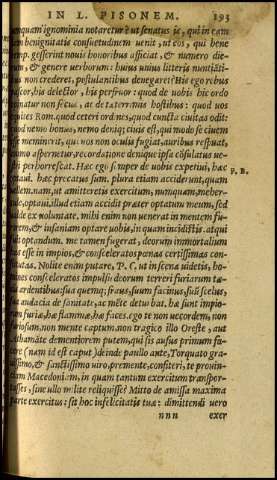 IN L. PISONEM. 193
unquam ignominia notaretur? ut senatus is, qui in eam
benignitatis consuetudinem uenit, ut eos, qui bene
gesserint nouis honoribus afficiat, & numero die-
, & genere uerborum: huius unius litteris nuntiāti-
us non crederet, postulantibus denegaret? His ego rebus
pascor, his delector, his perfruor: quod de uobis hic ordo
opinatur non secus, ac de taeterrimis hostibus: quod uos
equites Rom. quod ceteri ordines, quod cuncta ciuitas odit:
quod nemo bonus, nemo deniq; ciuis est, qui modo se ciuem
esse meminerit, qui uos non oculis fugiat, auribus respuat,
animo aspernetur, recordatione denique ipsa cōsulatus ue-
stri perhorrescat. Haec ego semper de uobis expetiui, haec
optaui, haec precatus sum. plura etiam acciderunt, quam
uellem. nam, ut amitteretis exercitum, nunquam, meher-
cule, optaui, illud etiam accidit praeter optatum meum, sed
ualde ex uoluntate. mihi enim non uenerat in mentem fu-
rorem, & insaniam optare uobis, in quam incidistis. atqui
fuit optandum. me tamen fugerat, deorum immortalium
has esse in impios, & consceleratos poenas certissimas con-
stitutas. Nolite enim putare, P. C. ut in scena uidetis, ho-
mines consceleratos impulsu deorum terreri furiarum tae-
dis ardentibus: sua quemq; fraus, suum facinus, suū scelus,
sua audacia de sanitate, ac mēte deturbat. hae sunt impio-
rum furiae, hae flammae, hae faces. ego te non uecordem, non
furiosum, non mente captum, non tragico illo Oreste, aut
Athamāte dementiorem putem, qui sis ausus primum fa-
cere (nam id est caput) deinde paullo ante, Torquato gra-
uissimo, & sanctissimo uiro, premente, confiteri, te prouin-
ciam Macedoniam, in quam tantum exercitum transpor-
tasses, sine ullo milite reliquisse? Mitto de amissa maxima
parte exercitus: sit hoc infelicitatis tuae: dimittendi uero
P. B.
nnn exer